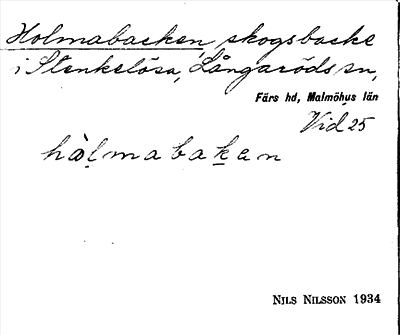 Holmabacken, skogsbacke
i Stenkelösa, Långaröds sn,
Färs hd, Malmöhus län
Vid 25
hòl̥mabak̠en
NILS NILSSON 1934